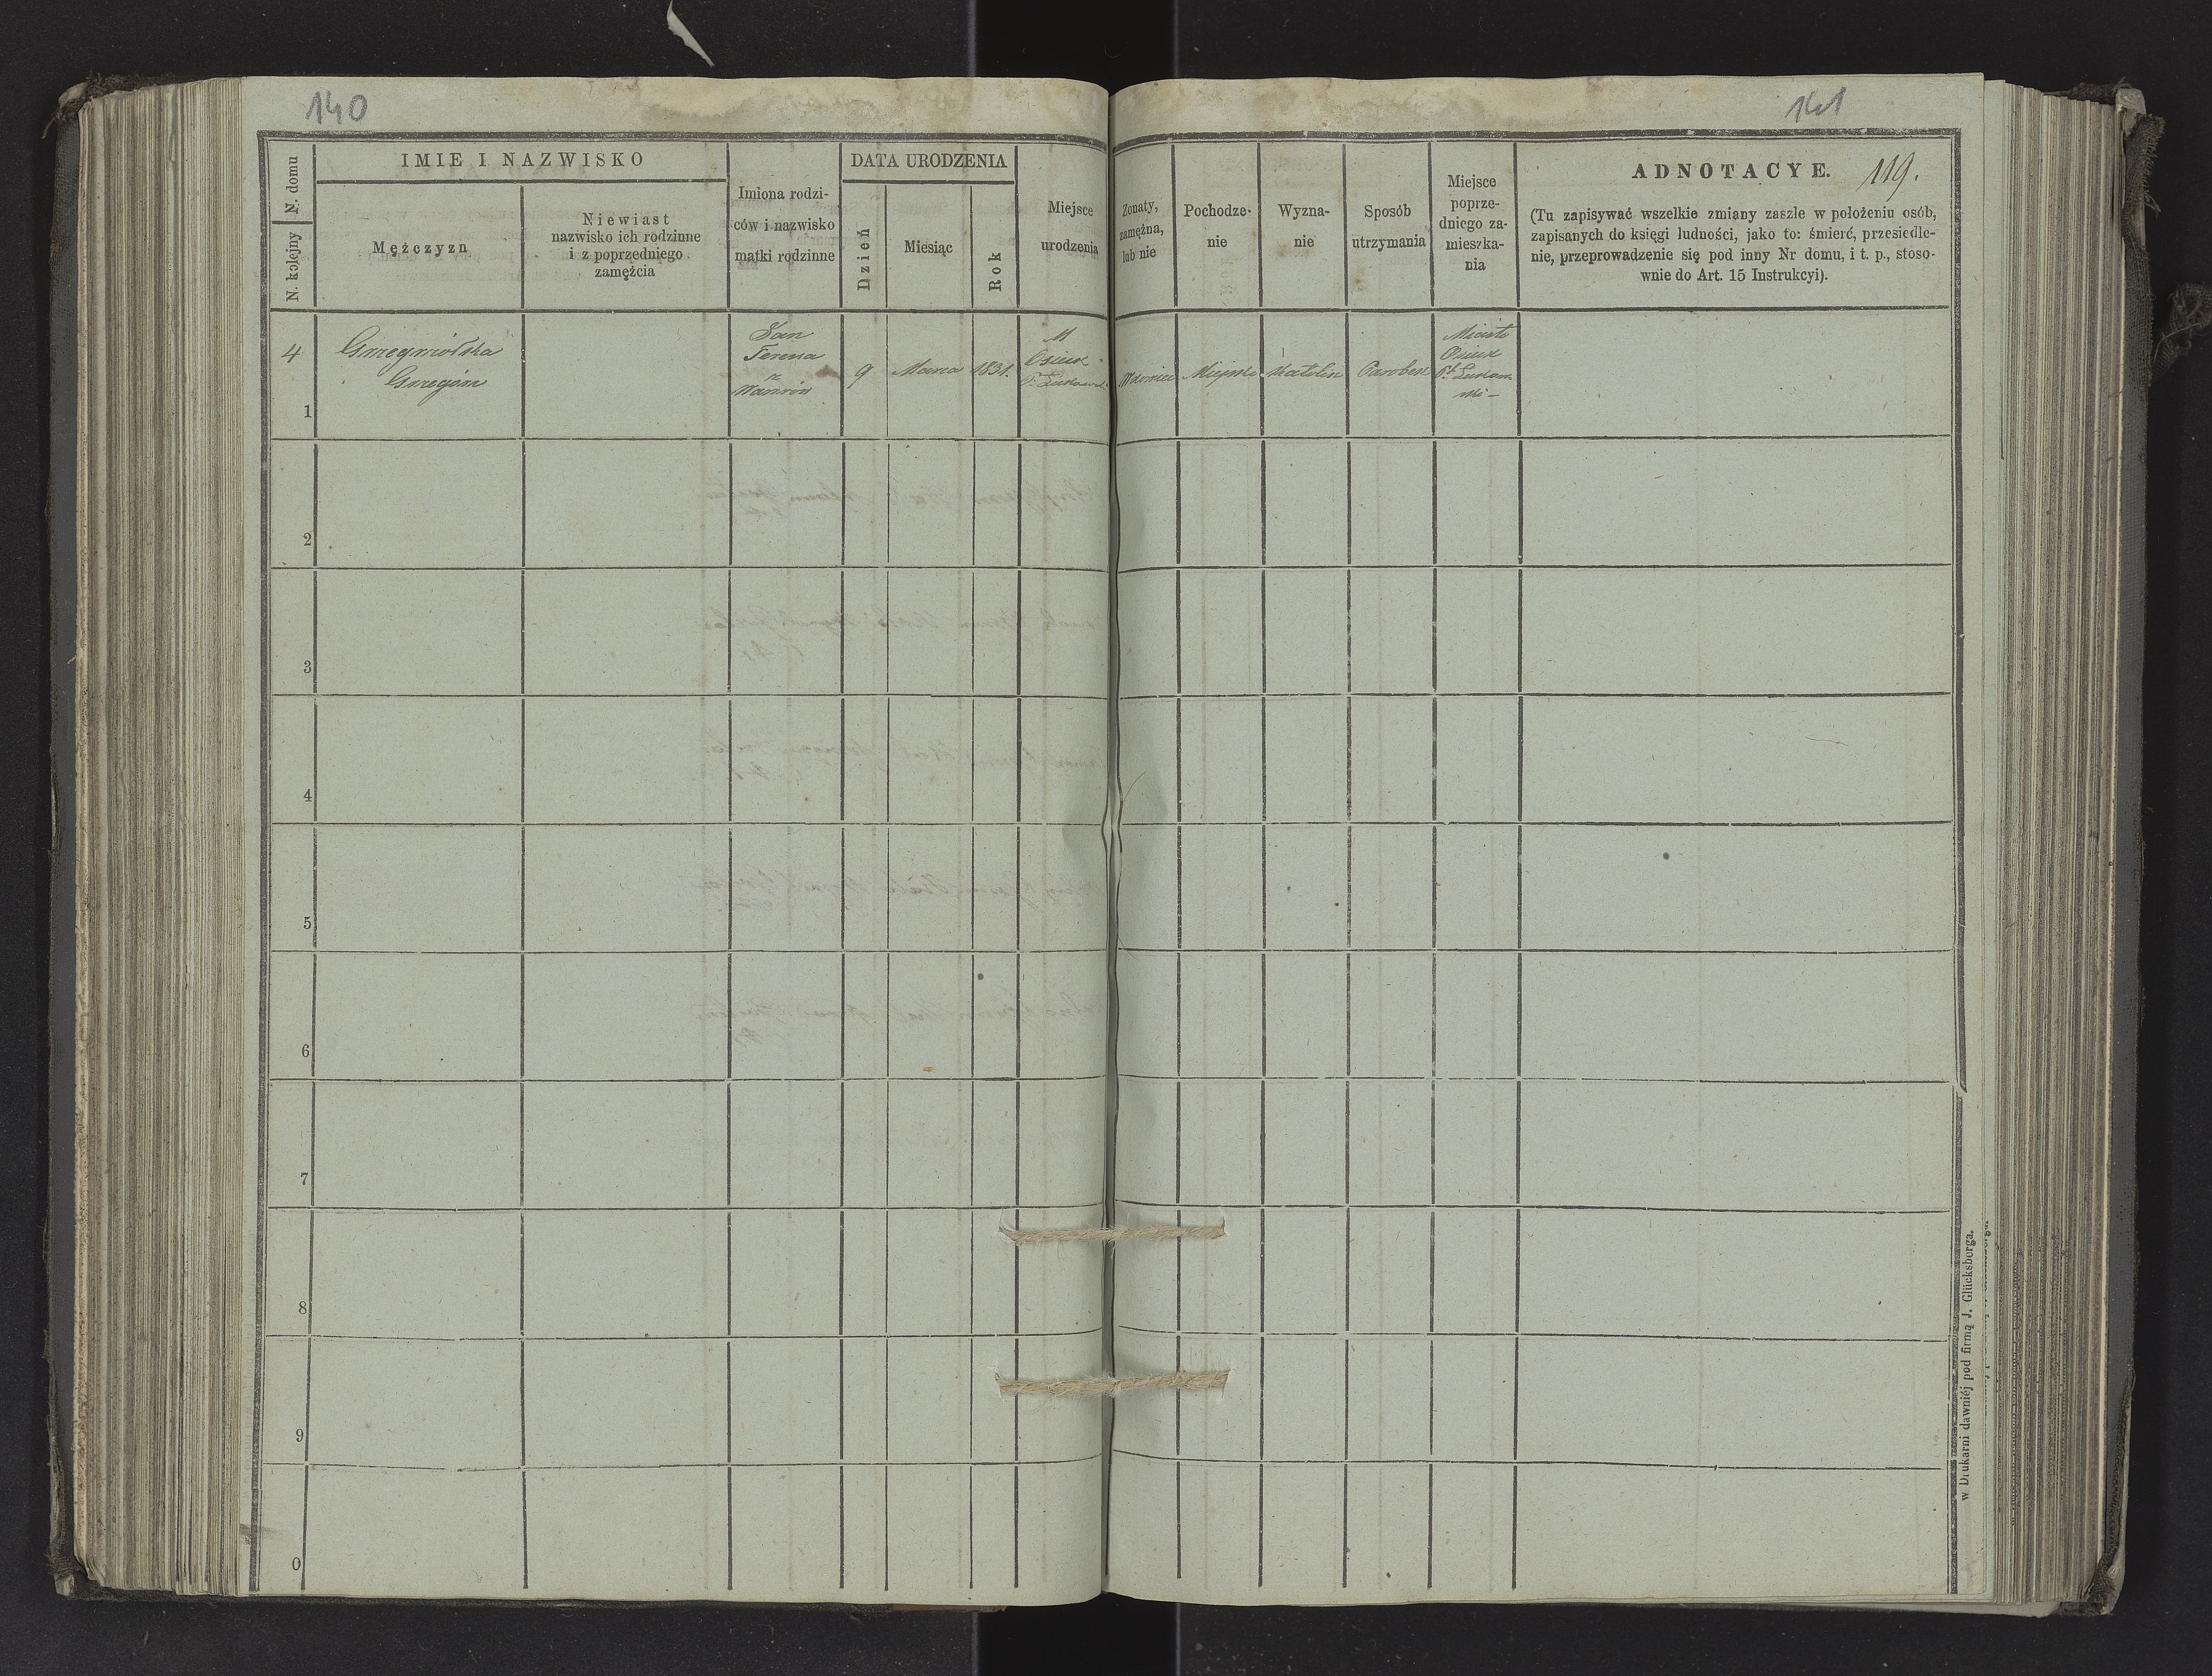 140
141
N. domu
N. kolejny
IMIE I NAZWISKO
Mężczyzn
Niewiast
nazwisko ich rodzinne
i z poprzedniego
zamęźcia
Imiona rodzi-
ców i nazwisko
matki rodzinne
DATA URODZENIA
Dzień
Miesiąc
Rok
Miejsce
urodzenia
Żonaty,
zamężna,
lub nie
Pochodze-
nie
Wyzna-
nie
Sposób
utrzymania
Miejsce
poprze-
dniego za-
mieszka-
nia
ADNOTACYE. 119.
(Tu zapisywać wszelkie zmiany zaszłe w położeniu osób,
zapisanych do księgi ludności, jako to: śmierć, przesiedle-
nie, przeprowadzenie się pod inny Nr domu, i t. p., stoso-
wnie do Art. 15 Instrukcyi).
4
1
Grzegorz
Jan
Teressa
z
9
Marca
1831.
M
Osiek
Wdowiec
Miejski
Katolik
Parobek
Miasto
Osiek
2
3
4
5
6
7
8
9
0
w Drukarni dawniéj pod firmą J. Glücksberga.